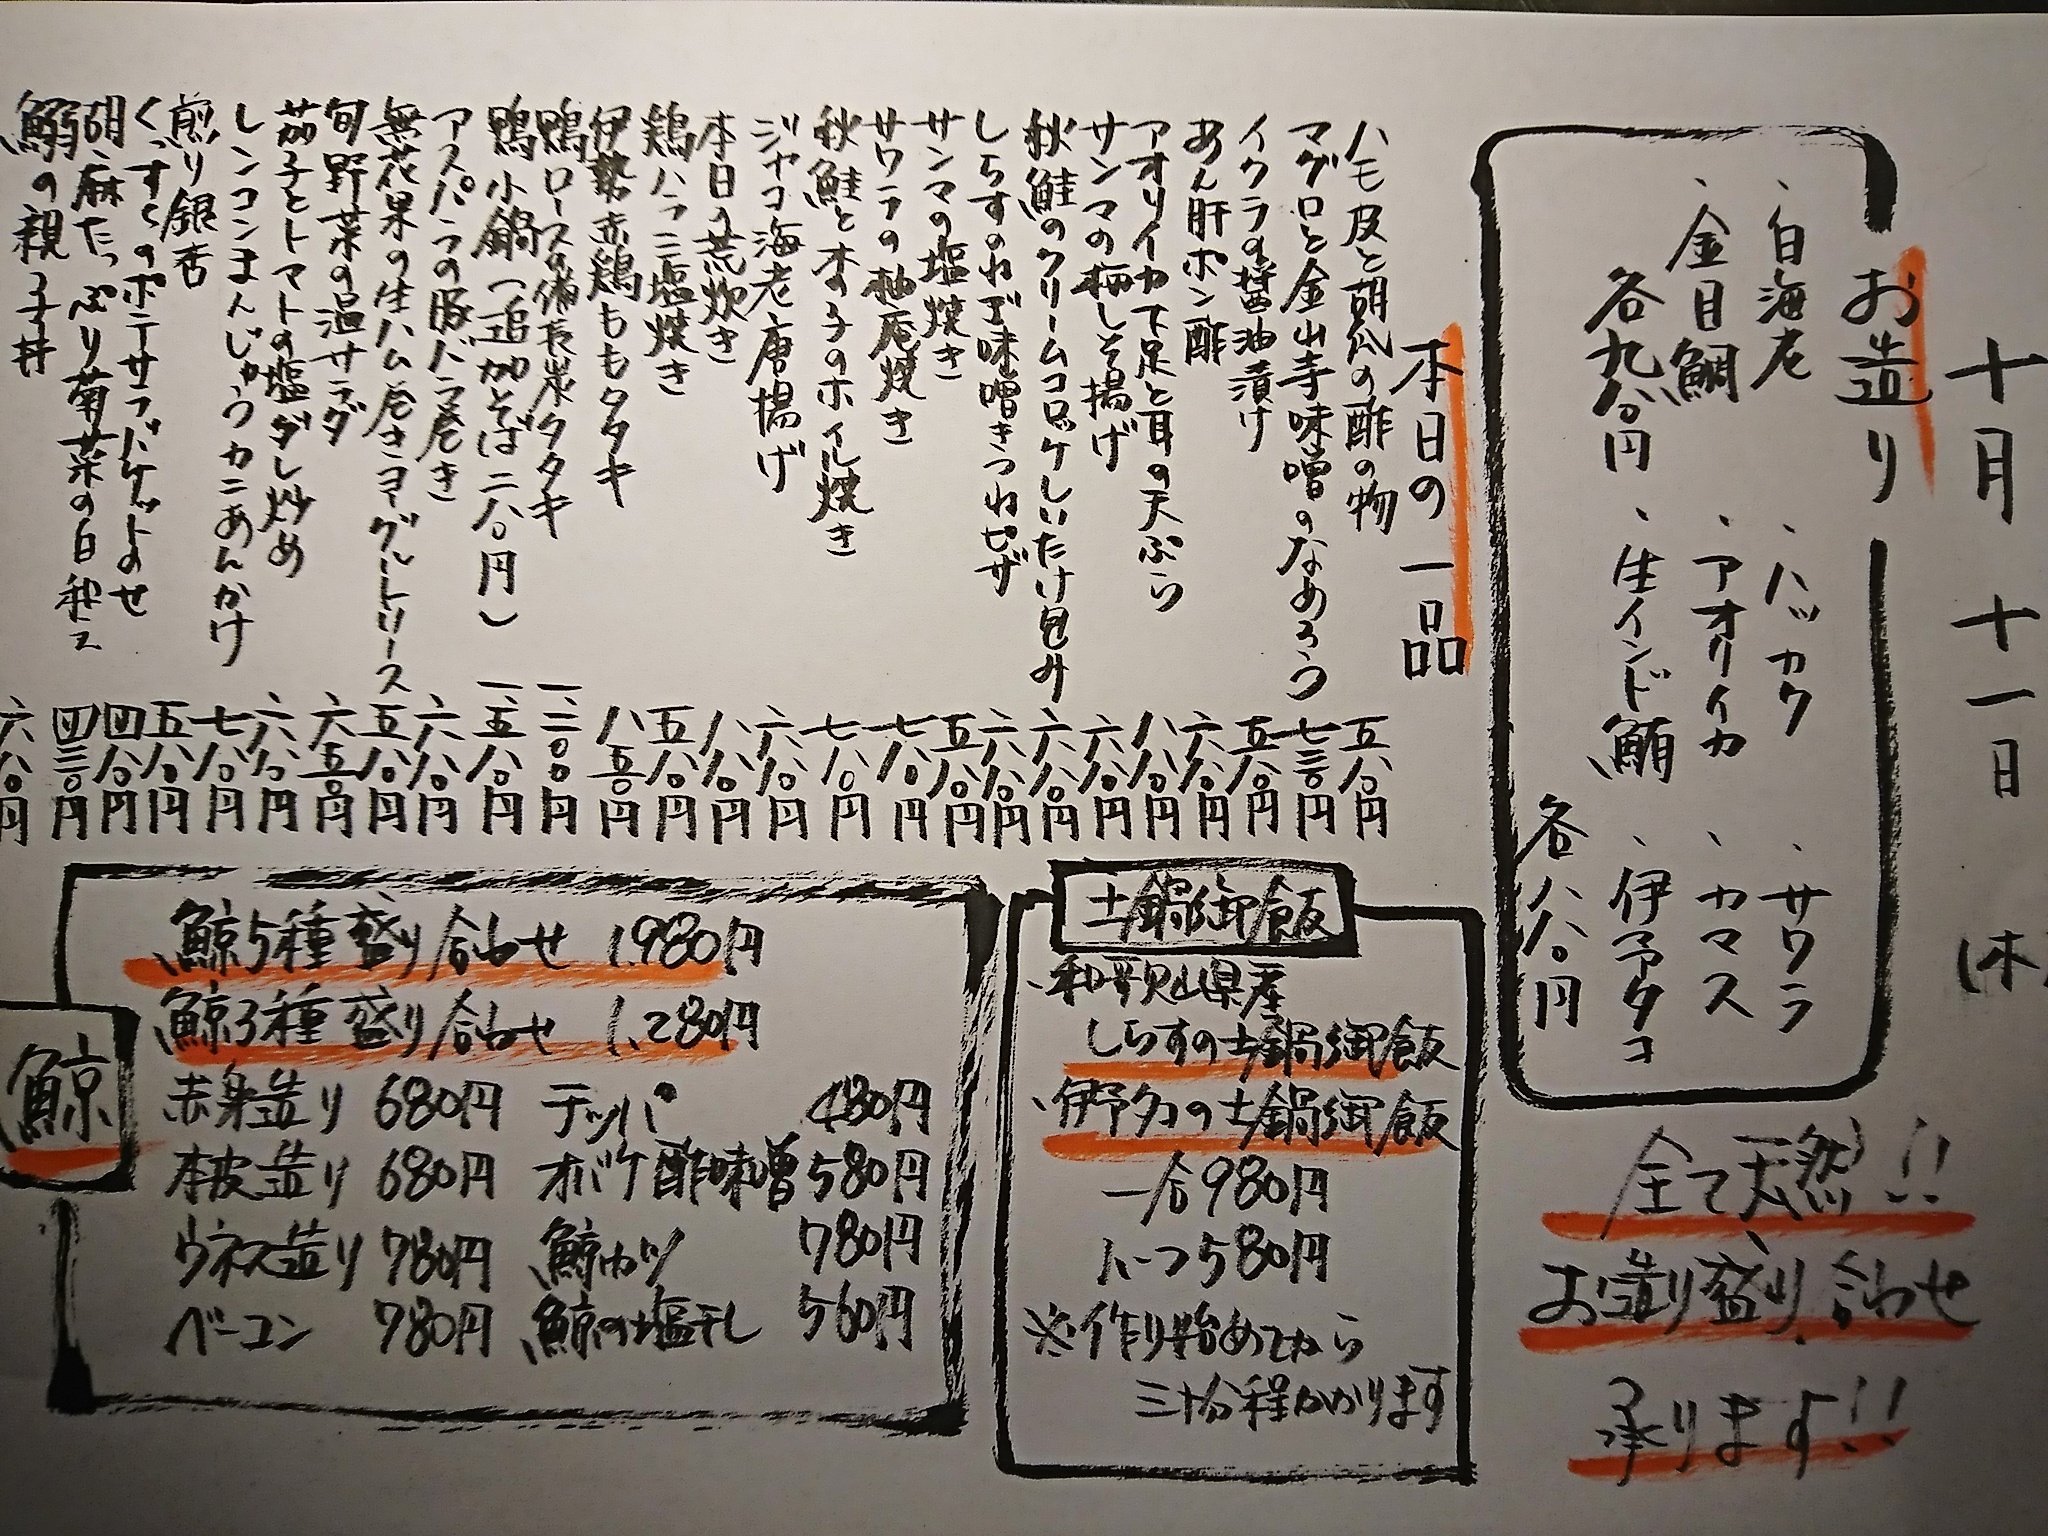 十月十一日
お造り
・白海老
・金目鯛
各九八〇円
・ハッカク
・アオリイカ
・生インド鮪
・サワラ
・カマス
・伊予タコ
各八八〇円
全て天然!!
お造り盛り合わせ
承ります!!
本日の一品
ハモ皮と胡瓜の酢の物 五八〇円
マグロと金山寺味噌のなめろう 七三〇円
イクラの醤油漬け 五八〇円
あん肝ポン酢 六八〇円
アオリイカ下足と耳の天ぷら 八八〇円
サンマの梅しそ揚げ 六八〇円
秋鮭のクリームコロッケしいたけ包み 六八〇円
しらすのねぎ味噌きつねピザ 六八〇円
サンマの塩焼き 五八〇円
サワラの柚庵焼き 七八〇円
秋鮭と木の子のホイル焼き 七八〇円
ジャコ海老唐揚げ 六八〇円
本日の荒炊き 八八〇円
鶏ハラミ塩焼き 五八〇円
伊勢赤鶏ももタタキ 八五〇円
鴨ロースの備長炭タタキ 一、二〇〇円
鴨小鍋(追加そば二八〇円) 一、五八〇円
アスパラの豚バラ巻き 六八〇円
無花果の生ハム巻きヨーグルトソース 五八〇円
旬野菜の温サラダ 六五〇円
茄子とトマトの塩ダレ炒め 六八〇円
レンコンまんじゅうカニあんかけ 七八〇円
煎り銀杏 五八〇円
くんすくのポテサラバケットのせ 四八〇円
胡麻たっぷり菊菜の白和え 四三〇円
鰯の親子丼 六八〇円
土鍋御飯
・和歌山県産
しらすの土鍋御飯
・伊予タコの土鍋御飯
一合980円
ハーフ580円
※作り始めてから
三十分程かかります
鯨
鯨5種盛り合わせ 1,980円
鯨3種盛り合わせ 1,280円
赤身造り 680円 テッパ 480円
本皮造り 680円 オバケ酢味噌 580円
ウネス造り 780円 鯨カツ 780円
ベーコン 780円 鯨の塩干し 560円